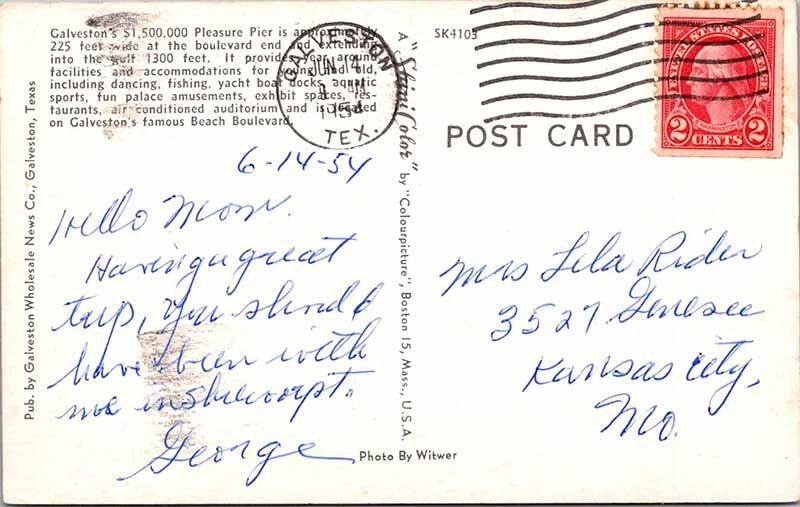 Galveston's $1,500,000 Pleasure Pier is approximately
225 feet wide at the boulevard end and extending
into the gulf 1300 feet. It provides year around
facilities and accommodations for young and old,
including dancing, fishing, yacht boat docks, aquatic
sports, fun palace amusements, exhibit spaces, res-
taurants, air conditioned auditorium and is located
on Galveston's famous Beach Boulevard.
GALVESTON
JUN 14
M
1954
TEX.
SK4105
UNITED STATES POSTAGE
2 CENTS 2
POST CARD
6-14-54
Hello Mom.
Having a great
trip, you should
have been with
me in Shreveport.
George
Mrs Lela Rider
3527 Genesee
Kansas City,
Mo.
Pub. by Galveston Wholesale News Co., Galveston, Texas
A "Shini Color" by "Colourpicture", Boston 15, Mass., U.S.A.
Photo By Witwer